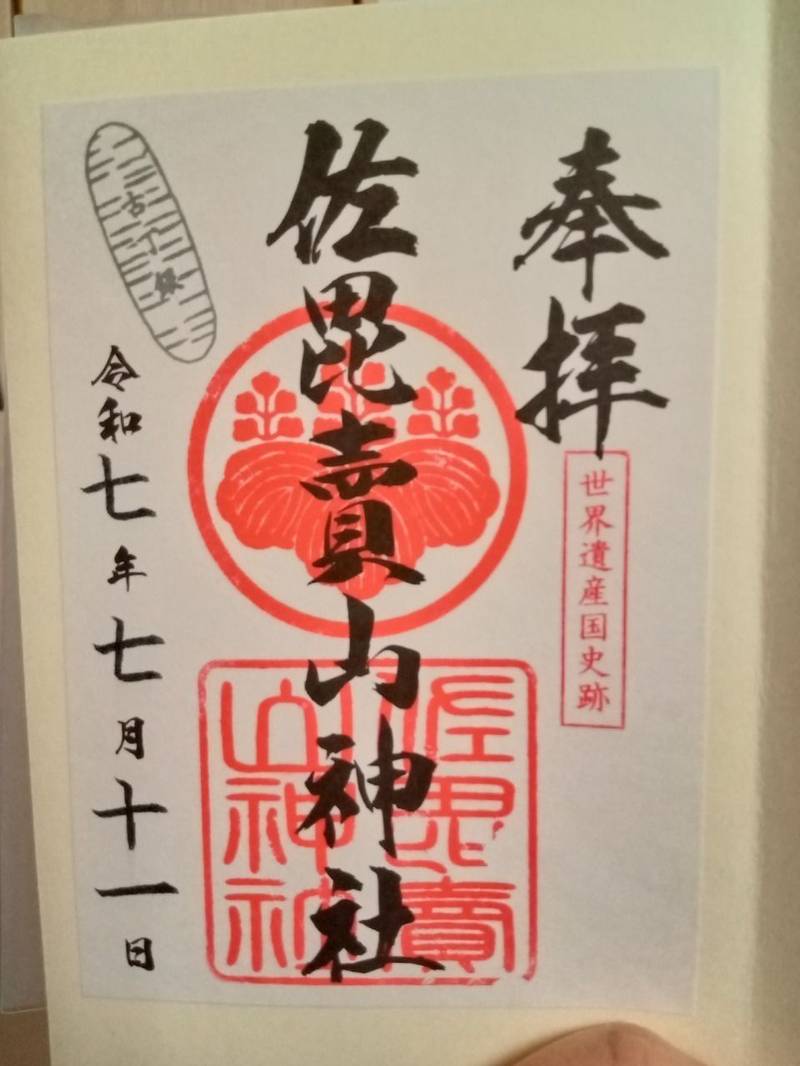 奉拝
世界遺産国史跡
佐毘賣山神社
佐毘賣山神社
古丁銀
令和七年七月十一日